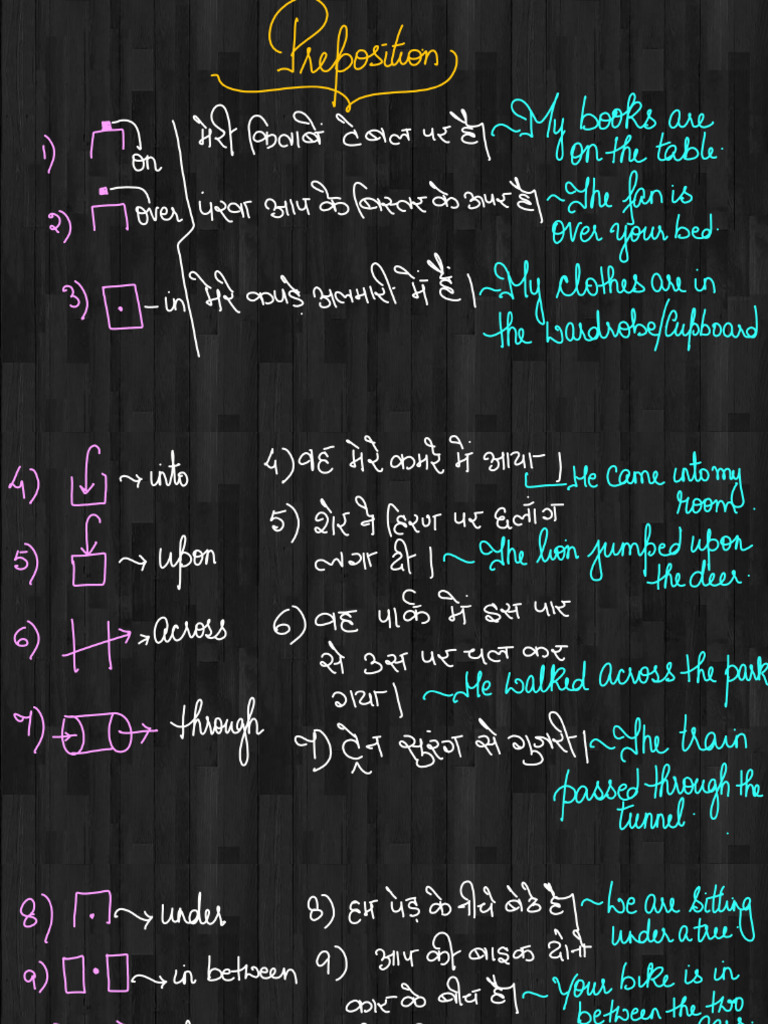 Preposition
1) on मेरी किताबें टेबल पर हैं। ~ My books are
on the table.
2) over पंखा आप के बिस्तर के ऊपर है। ~ The fan is
over your bed.
3) - in मेरे कपड़े अलमारी में हैं। ~ My clothes are in
the wardrobe/Cupboard
4) → into 4) वह मेरे कमरे में आया। He came into my
room.
5) → upon 5) शेर ने हिरण पर छलाँग
लगा दी। ~ The lion jumped upon
the deer.
6) → Across 6) वह पार्क में इस पार
से उस पर चल कर
गया। ~ He walked across the park
7) through 7) ट्रेन सुरंग से गुज़री। ~ The train
passed through the
tunnel.
8) → under 8) हम पेड़ के नीचे बैठे हैं। ~ We are sitting
under a tree.
9) → in between 9) आप की बाइक दोनों
कार के बीच है। ~ Your bike is in
between the two